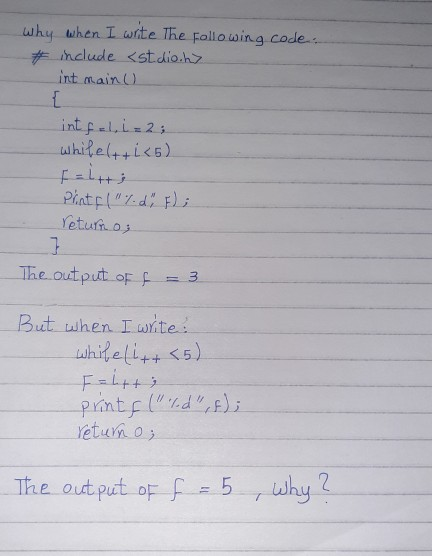 Why when I write The Following code:
# include <stdio.h>
int main()
{
int f=1, i=2;
while(++i<5)
F=i++;
Printf("%d", F);
return 0;
}
The output of f = 3
But when I write:
while(i++ <5)
F=i++;
printf("%d", F);
return 0;
The output of f = 5, why?